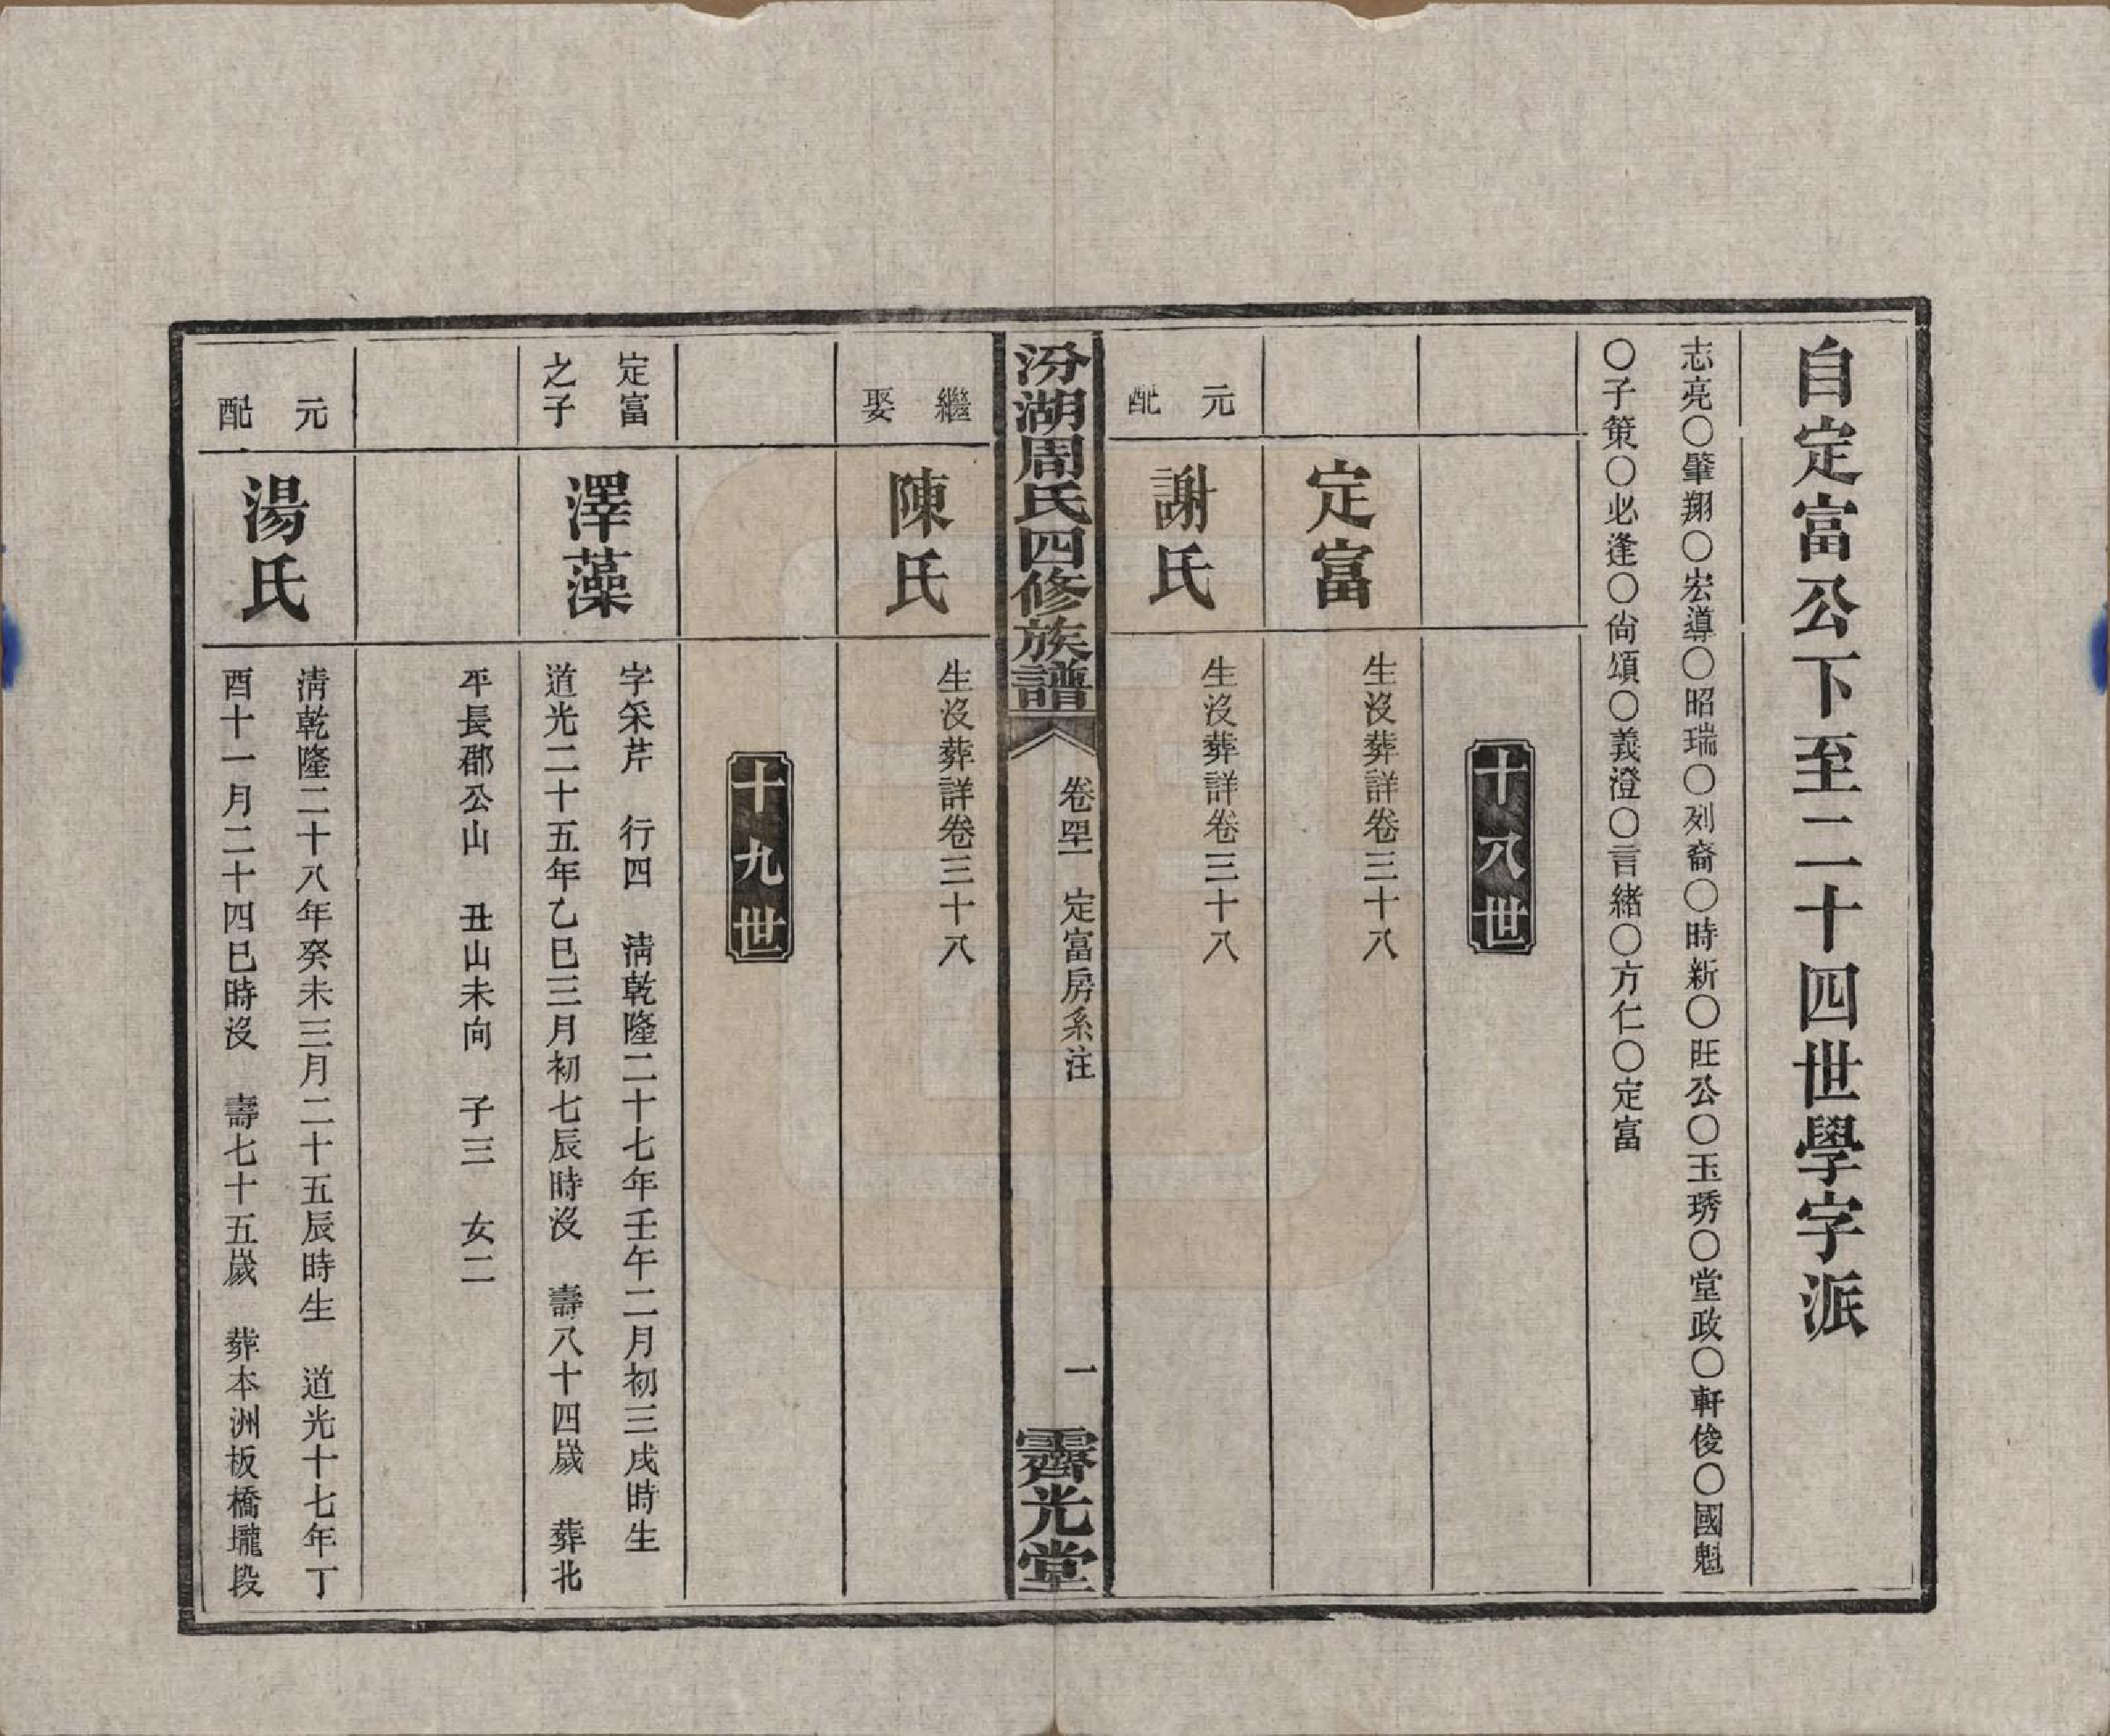 自定富公下至二十四世學字派
志亮○肇翔○宏導○昭瑞○列裔○時新○旺公○玉琇○堂政○軒俊○國魁
○子策○必逢○尙頌○義澄○言緒○方仁○定富
十八世
定富
生沒葬詳卷三十八
元配
謝氏
生沒葬詳卷三十八
汾湖周氏四修族譜
卷四十一 定富房系注
一
霽光堂
繼娶
陳氏
生沒葬詳卷三十八
十九世
定富之子
澤藻
字采芹 行四 淸乾隆二十七年壬午二月初三戌時生
道光二十五年乙巳三月初七辰時沒 壽八十四歲 葬北
平長郡公山 丑山未向 子三 女二
元配
湯氏
淸乾隆二十八年癸未三月二十五辰時生 道光十七年丁
酉十一月二十四巳時沒 壽七十五歲 葬本洲板橋壠段